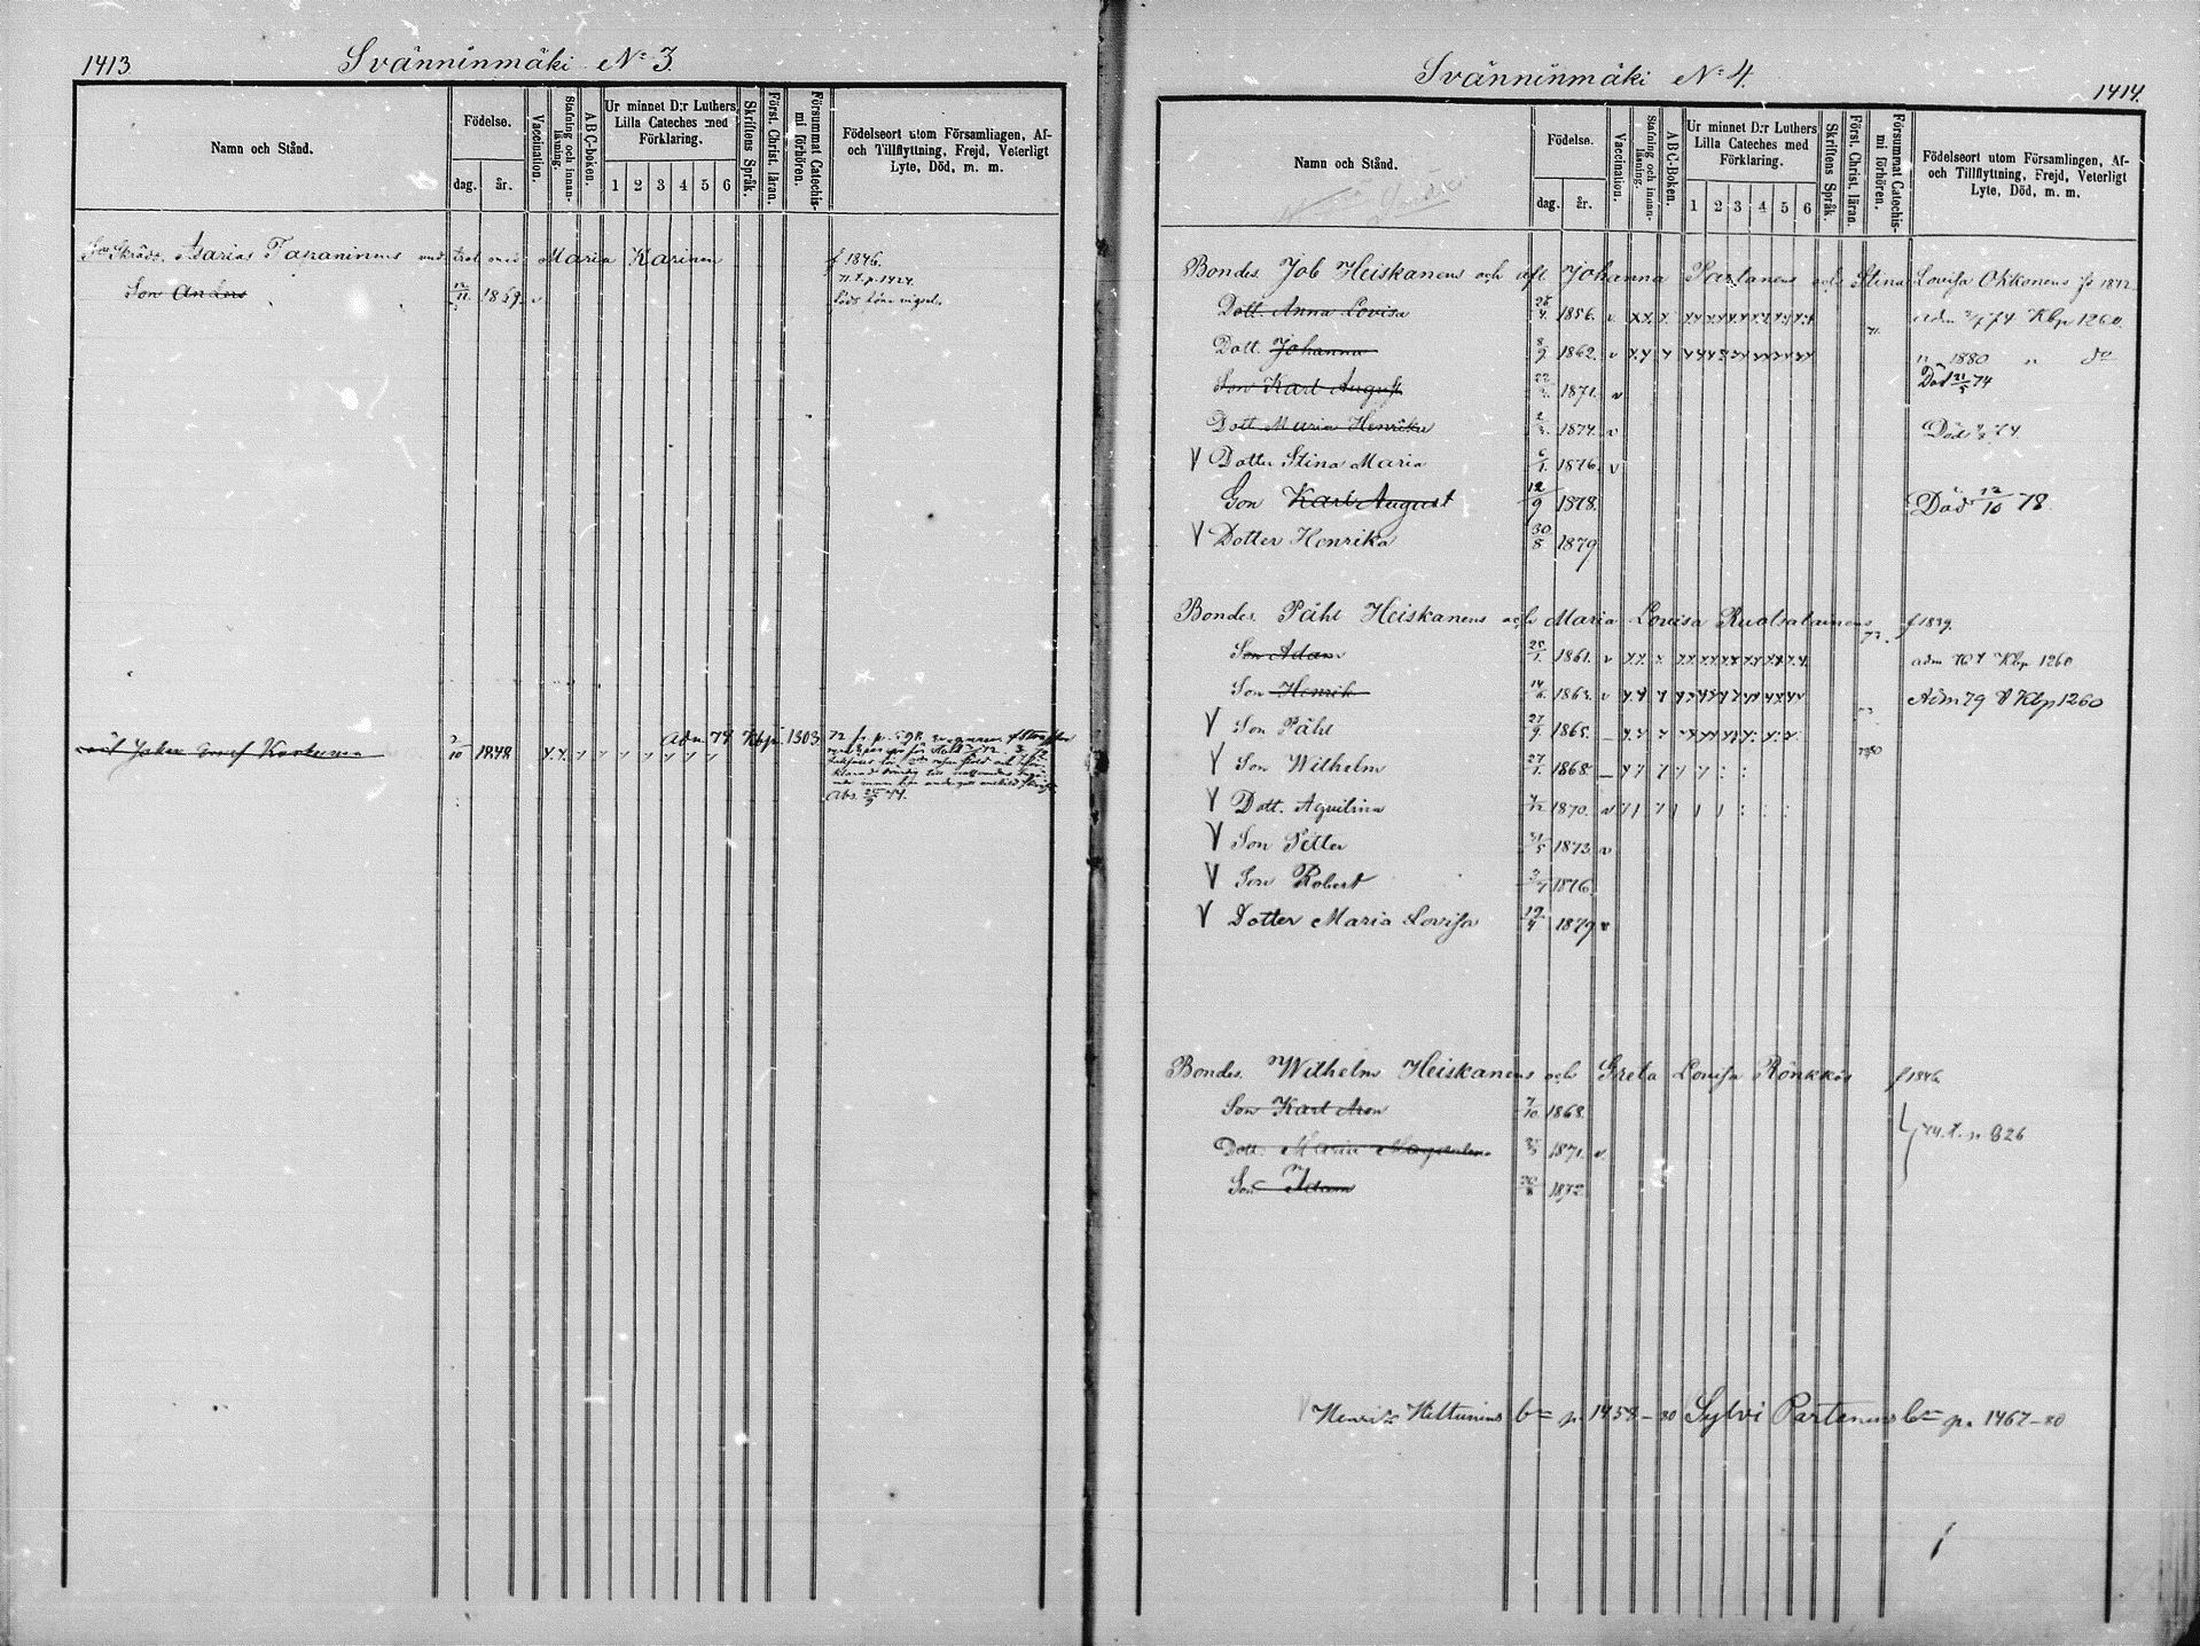 1413
Svänninmäki No 3.
Namn och Stånd.
Födelse.
dag.
år.
Vaccination.
Stafning och innan-läsning.
ABC-boken.
Ur minnet D:r Luthers Lilla Cateches med Förklaring.
1 2 3 4 5 6
Skriftens Språk.
Först. Christ. läran.
Försummat Catechis-mi förhören.
Födelseort utom Församlingen, Af- och Tillflyttning, Frejd, Veterligt Lyte, Död, m. m.
Asarias Tapaninens Maria Karinen f 1846.
71. t. p. 1424.
Son Anders 12/11 1869. v
2/10 1848 Adm. 74 Kbp. 1303. 72 fr. p. 598.
Abs. 74.
Svänninmäki No 4.
1414.
Namn och Stånd.
Födelse.
dag.
år.
Vaccination.
Stafning och innan-läsning.
ABC-Boken.
Ur minnet D:r Luthers Lilla Cateches med Förklaring.
1 2 3 4 5 6
Skriftens Språk.
Först. Christ. läran.
Försummat Catechis-mi förhören.
Födelseort utom Församlingen, Af- och Tillflyttning, Frejd, Veterligt Lyte, Död, m. m.
Bonden Job Heiskanens och afl Johanna Partanens och Stina Lovisa Okkonens
Dott. Anna Lovisa 1856. v. Kbp 1260.
Dott. Johanna 8/9 1862. v 1880 " do
Son Karl August 1871. v Död 21/5 74
Dott Maria Henrika 1874. v Död 74.
V Dotter Stina Maria 6/1. 1876. v
Son Karl August 12/9 1878. Död 12/10 78.
V Dotter Henrika 30/8 1879
Bonden Påhl Heiskanens och Maria Lovisa Ruotsalainens f 1839.
Son Adam 1861. v adm Kbp 1260
Son Henrik 14/6 1863. v Adm 79 Kbp 1260
V Son Påhl 27/9 1865.
V Son Wilhelm 27/1. 1868
V Dott. Aquilina 1870. v
V Son Petter 1873 v
V Son Robert 1876
V Dotter Maria Lovisa 1879 v
Bonden Wilhelm Heiskanens och Greta Lovisa Rönkkös f 1846
Son Karl Aron 7/10 1868.
Dott. Maria Magdalena 1871. v. 74. t. p 826
Son Adam 1872
V Henrik p. 1454-80 Sylvi Partanens p. 1467-80